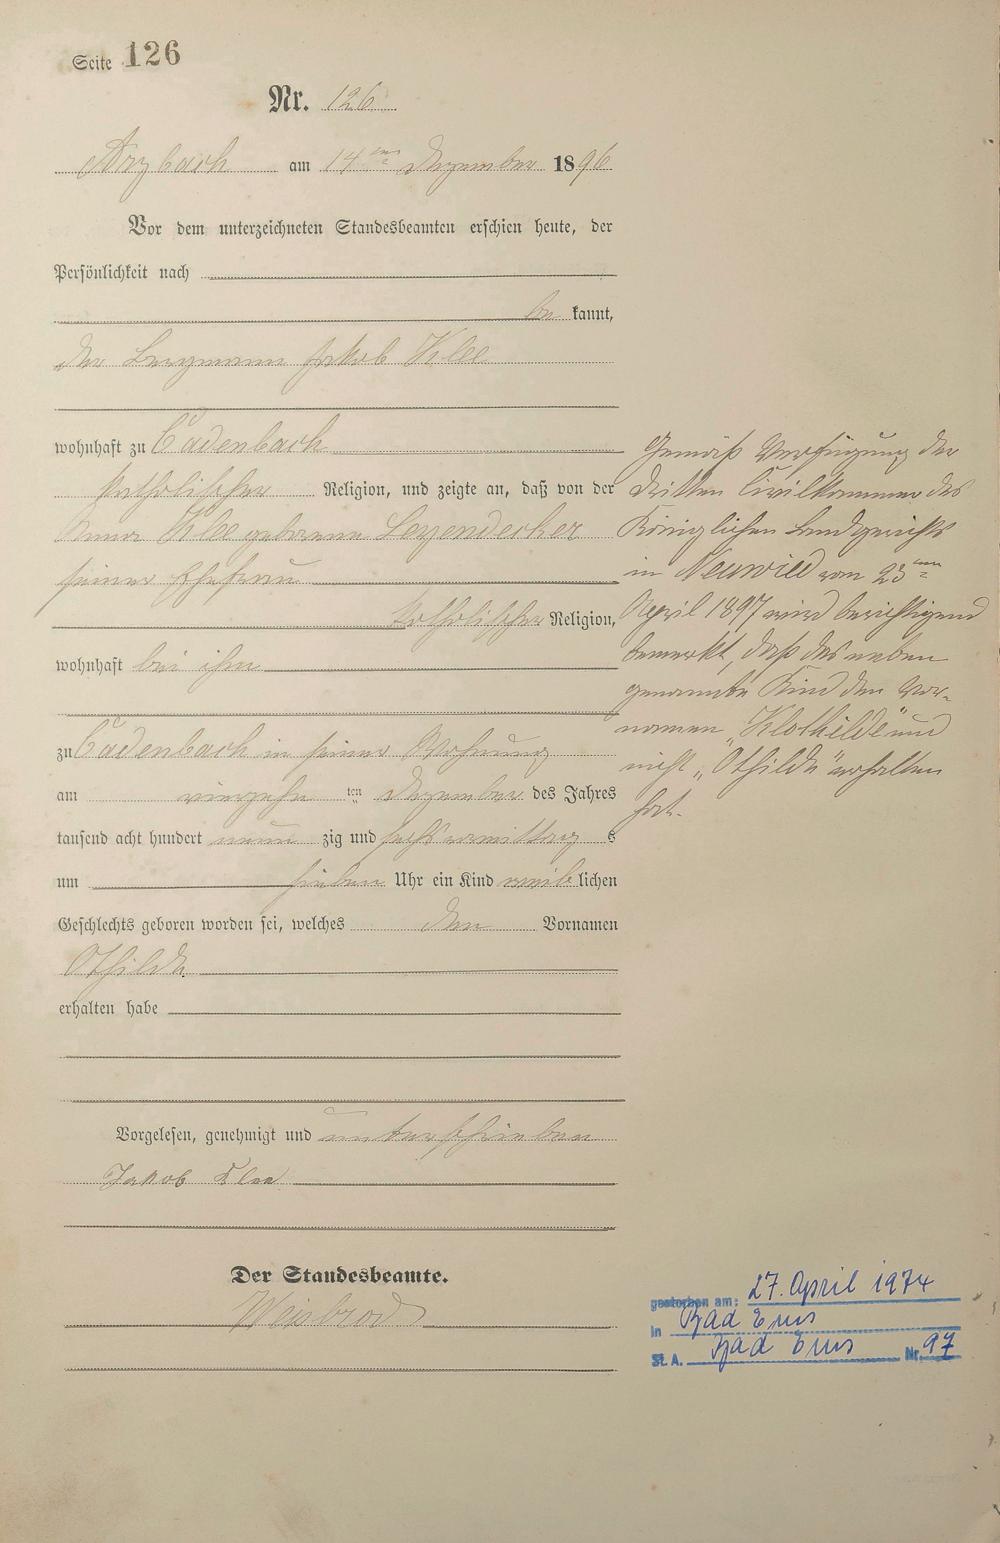 Seite 126
Nr. 126
Arzbach am 14ten Dezember 1896
Vor dem unterzeichneten Standesbeamten erschien heute, der
Persönlichkeit nach
be kannt,
der Bergmann Jakob Klee
wohnhaft zu Cadenbach
katholischer Religion, und zeigte an, daß von der
Anna Klee geborene Leyendecker
seiner Ehefrau
katholischer Religion,
wohnhaft bei ihm
zu Cadenbach in seiner Wohnung
am vierzehn ten Dezember des Jahres
tausend acht hundert neun zig und sechs vormittag s
um sieben Uhr ein Kind weiblichen
Geschlechts geboren worden sei, welches den Vornamen
Othilde
erhalten habe
Vorgelesen, genehmigt und unterschrieben
Jakob Klee
Der Standesbeamte.
Weisbrod
Gemäß Verfügung der
dritten Civilkammer des
Königlichen Landgerichts
in Neuwied vom 23ten
April 1897 wird berichtigend
bemerkt, daß das neben
genannte Kind den Vor-
namen „Klothilde“ und
nicht „Othilde“ erhalten
hat.
gestorben am: 27. April 1974
in Bad Ems
St. A. Bad Ems Nr. 97